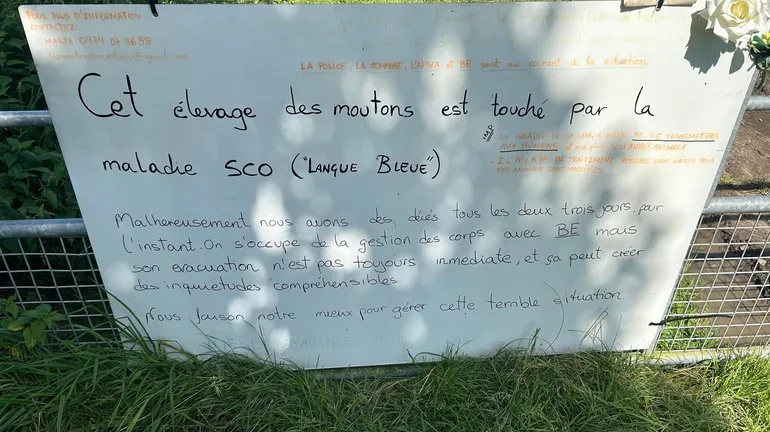 POUR PLUS D'INFORMATION
CONTACTEZ:
MARTA: 0474
@gmail.com
LA POLICE, LA COMMUNE, L'AFSCA et BE sont au courant de la situation
Cet élevage des moutons est touché par la
maladie SCO ("LANGUE BLEUE")
IMP
LA MALADIE DE LA LANGUE BLEUE NE SE TRANSMET PAS
AUX HUMAINS et non plus à d'AUTRES ANIMAUX
• IL N'Y A PAS DE TRAITEMENT POSSIBLE
NOS ANIMAUX SONT VACCINÉS
Malhereusement, nous avons des décés tous les deux trois jours, pour
l'instant. On s'occupe de la gestion des corps avec BE mais
son evacuation n'est pas toujours inmediate, et ça peut créer
des inquietudes compréhensibles
Nous faison notre mieux pour gérer cette terrible situation